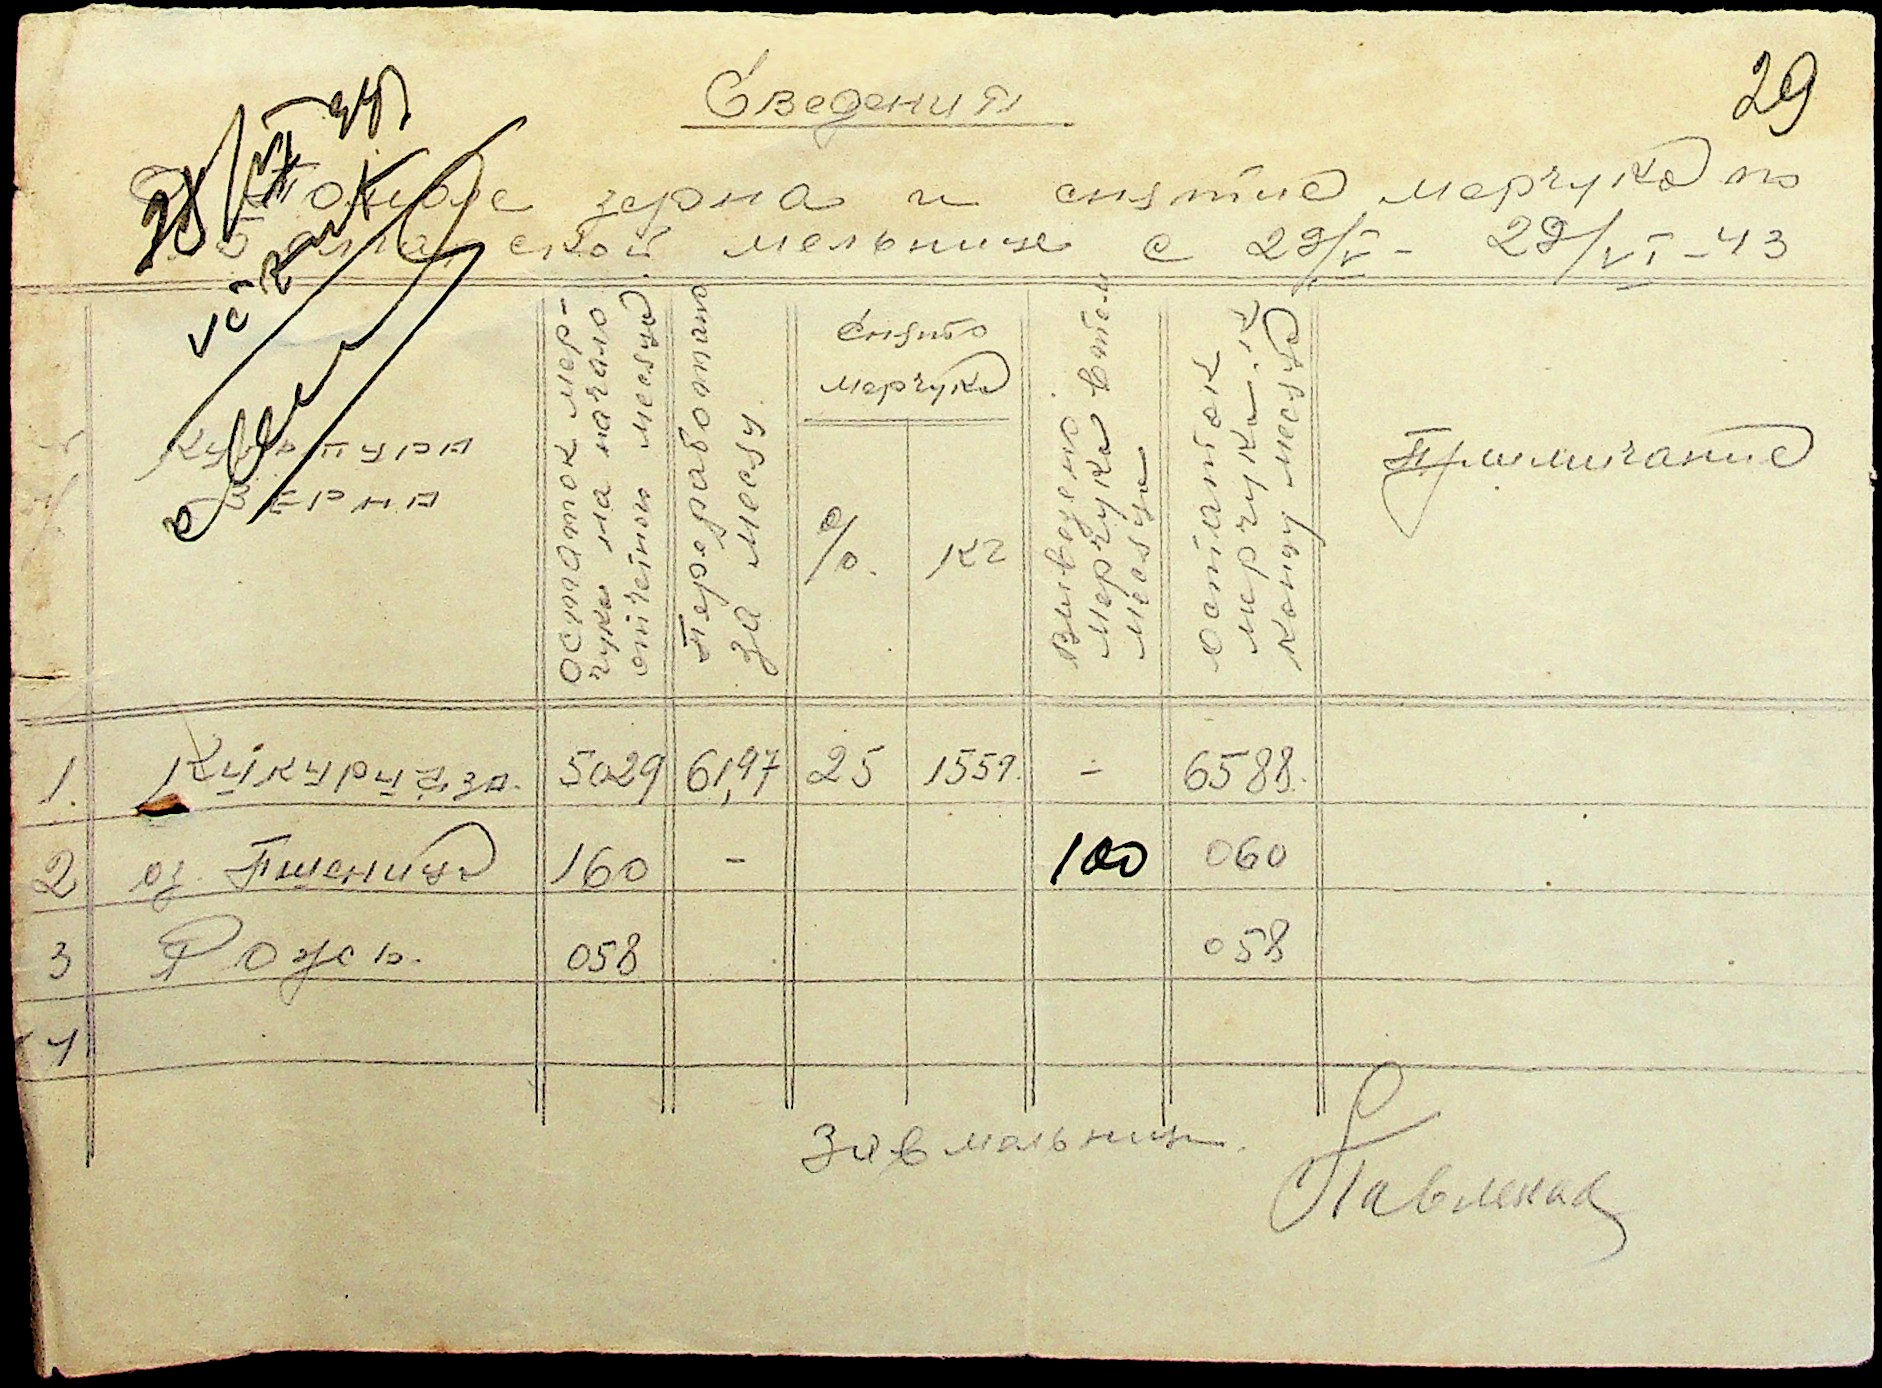 29
Сведения
помоле зерна и снятие мерчука по
ской мельнице с 29/V - 29/VI - 43
Культура
зерна
Остаток мер-
чука на начало
отчетного месяца
Переработано
за месяц.
Снято
мерчука
%.
кг
Выведено
мерчука в этом
месяце
Остаток
мерчука. на
конец месяца
Примичание
1. Кукурудза. 5029 61,97 25 1559. - 6588.
2 оз. Пшеница 160 - 100 060
3 Рожь. 058 058
4
Зав мельниц.